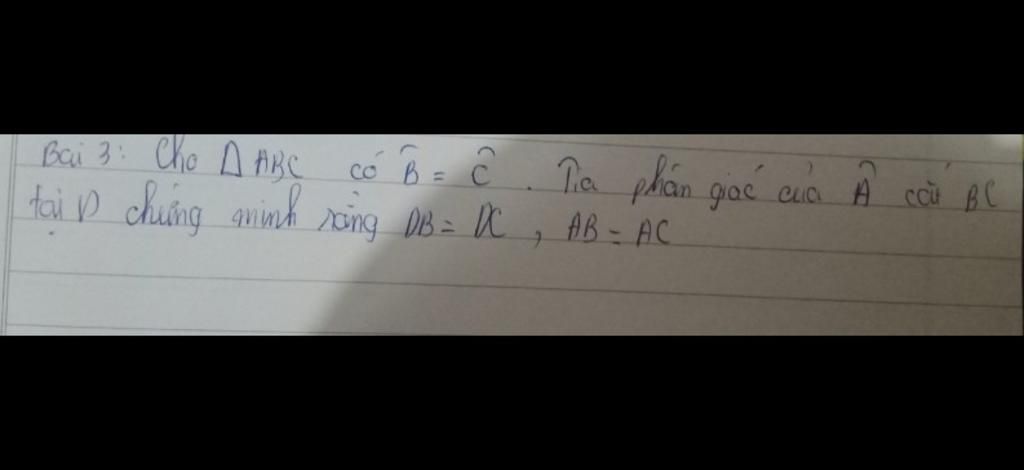 Bài 3: Cho Δ ABC có B̂ = Ĉ. Tia phân giác của Â cắt BC
tại D chứng minh rằng DB = DC, AB = AC